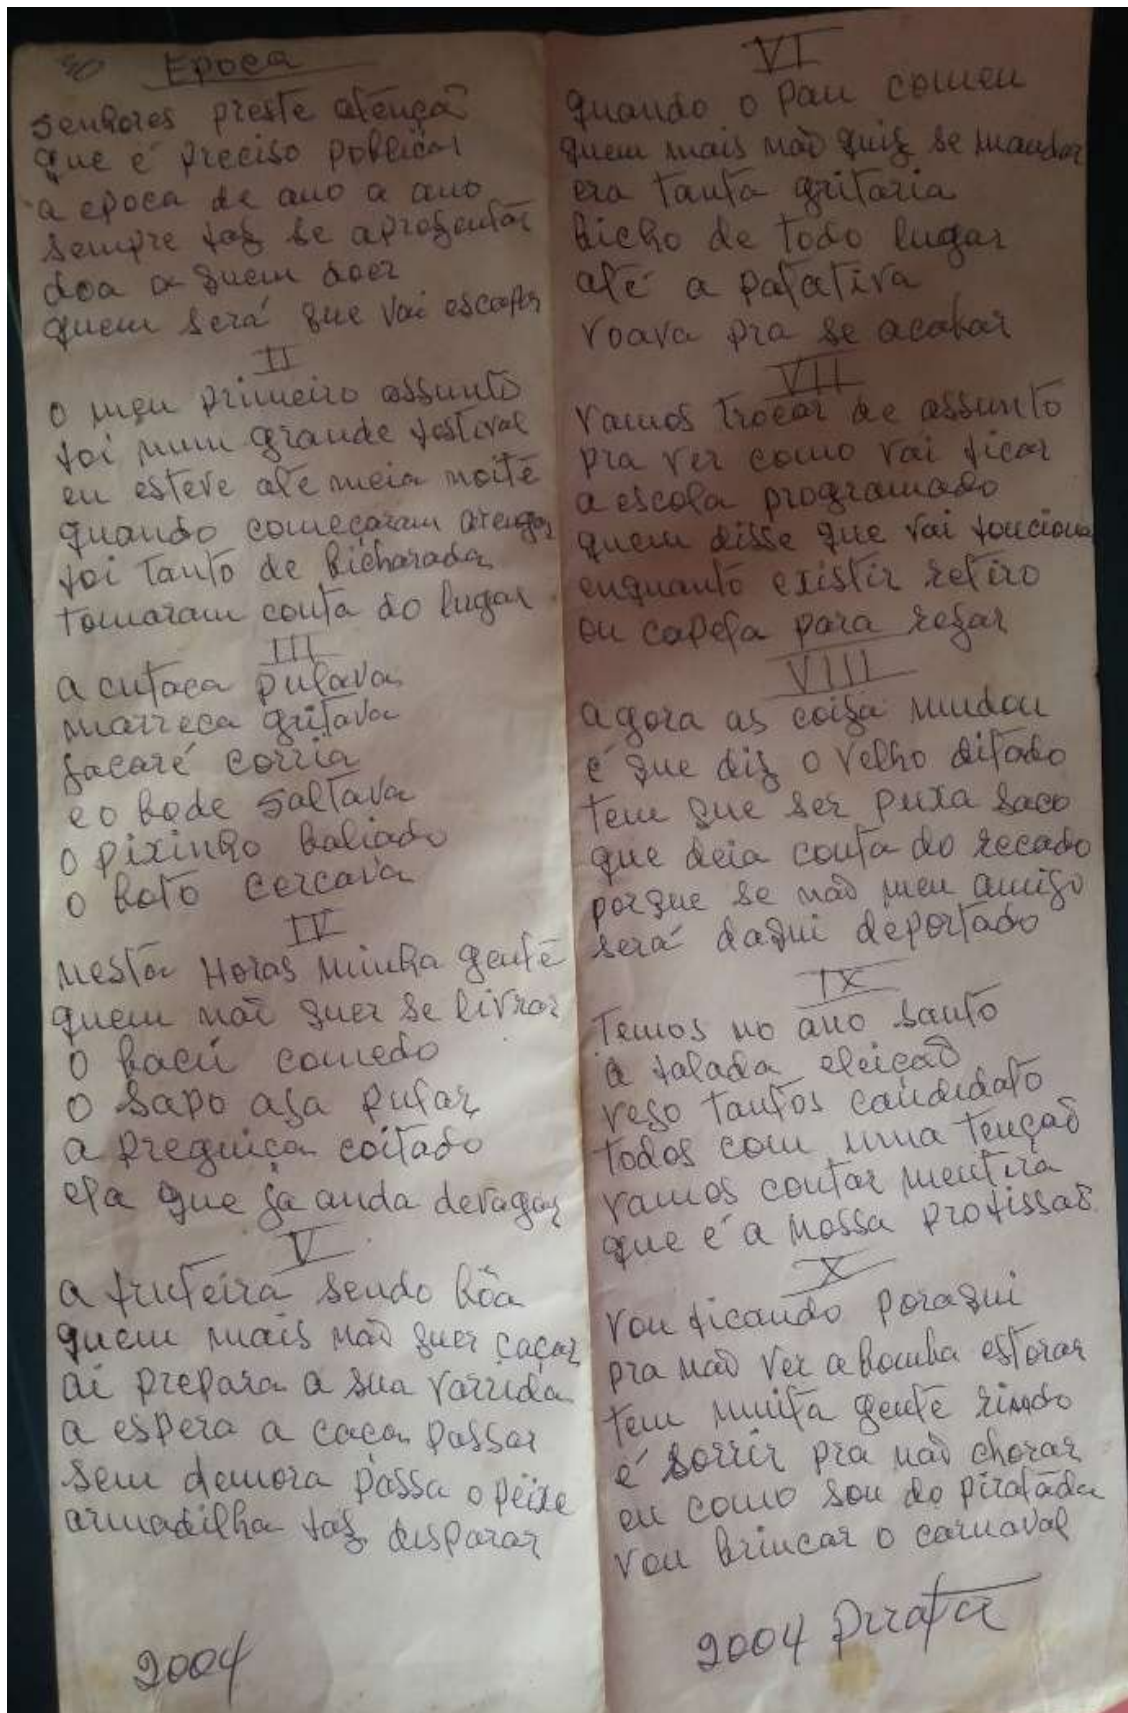 Epoca
Senhores preste atençã
que é preciso poblicar
a epoca de ano a ano
sempre faz se aprosentar
doa a quem doer
quem será que vai escapar
II
o meu primeiro assunto
foi num grande festival
eu esteve até meia noite
quando começaram arengar
foi tanto de bicharada
tomaram conta do lugar
III
a cutaca pulava
marreca gritava
jacaré corria
e o bode saltava
o pixinho baliado
o boto cercava
IV
nesta Horas minha gente
quem não quer se livrar
o bacú comedo
o sapo aja pular
a preguiça coitado
ela que ja anda devagar
V
a fruteira sendo bôa
quem mais não quer caçar
ai prepara a sua varrida
a espera a caça passar
sem demora passa o peixe
armadilha faz disparar
2004
VI
quando o pau comeu
quem mais não quiz se mandar
era tanta gritaria
bicho de todo lugar
até a patativa
voava pra se acabar
VII
vamos trocar de assunto
pra ver como vai ficar
a escola programado
quem disse que vai founciona
enquanto existir retiro
ou capela para rezar
VIII
agora as coiza mudou
é que diz o velho ditado
tem que ser puxa saco
que deia conta do recado
porque se não meu amigo
será daqui deportado
IX
Temos no ano santo
a falada eleição
vejo tantos candidato
todos com uma tenção
vamos contar mentira
que é a nossa profissão
X
vou ficando poraqui
pra não ver a bomba estorar
tem muita gente rindo
é sorrir pra não chorar
eu como sou do piratada
vou brincar o carnaval
2004 Pirata